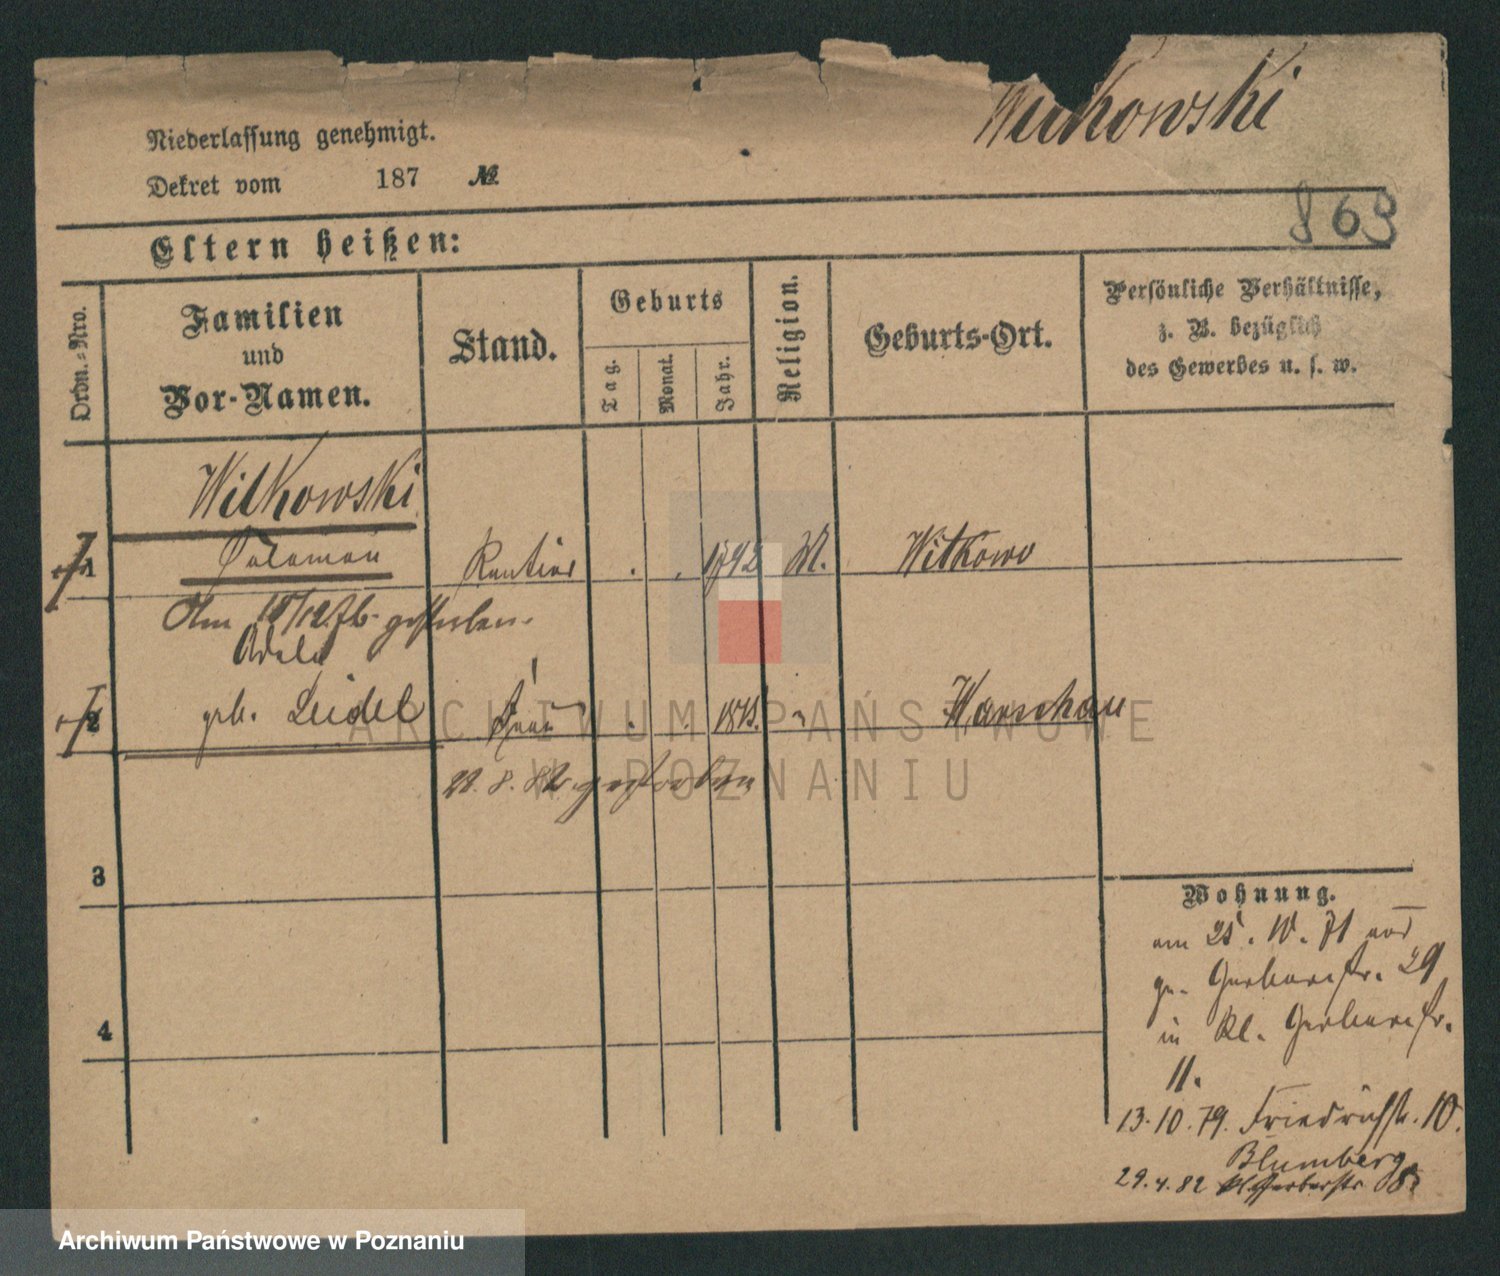 Witkowski
Niederlassung genehmigt.
Dekret vom 187 №
869
Eltern heißen:
Ordn.-Nro.
Familien
und
Vor-Namen.
Stand.
Geburts
Tag.
Monat.
Jahr.
Religion.
Geburts-Ort.
Persönliche Verhältnisse,
z. B. bezüglich
des Gewerbes u. s. w.
Witkowski
1 Salomon Rentier 1792 M. Witkowo
Am 18/12.76. gestorben.
Adele
2 geb. Seidel Frau Warschau
22. 8. 82. gestorben
3
Wohnung.
am 25. 10. 71 von
gr. Gerberstr. 29
in kl. Gerberstr.
11.
4
13.10.79. Friedrichstr. 10.
Blumberg
29.4.82 kl. Gerberstr 8.
ARCHIWUM PAŃSTWOWE
W POZNANIU
Archiwum Państwowe w Poznaniu